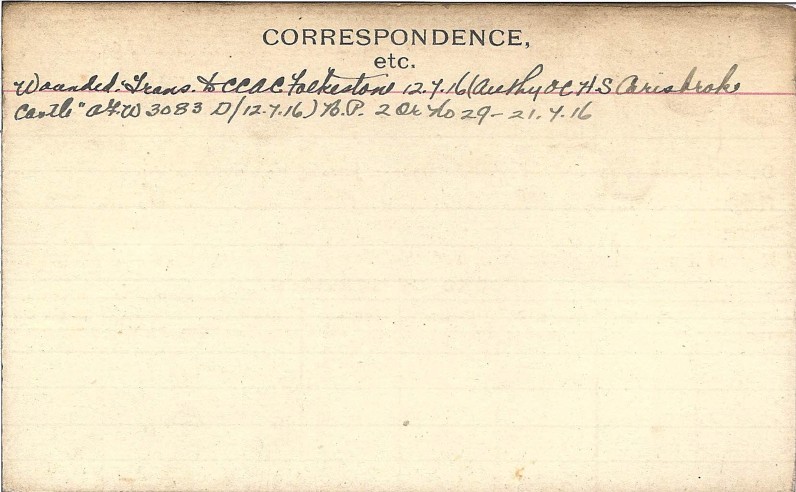 CORRESPONDENCE,
etc.
Wounded. Trans. to CCAC Folkestone 12.7.16 (Authy OC H.S Carisbroke
Castle" A.F.W 3083 D/12.7.16) B.P. 2 Or No 29 - 21.7.16